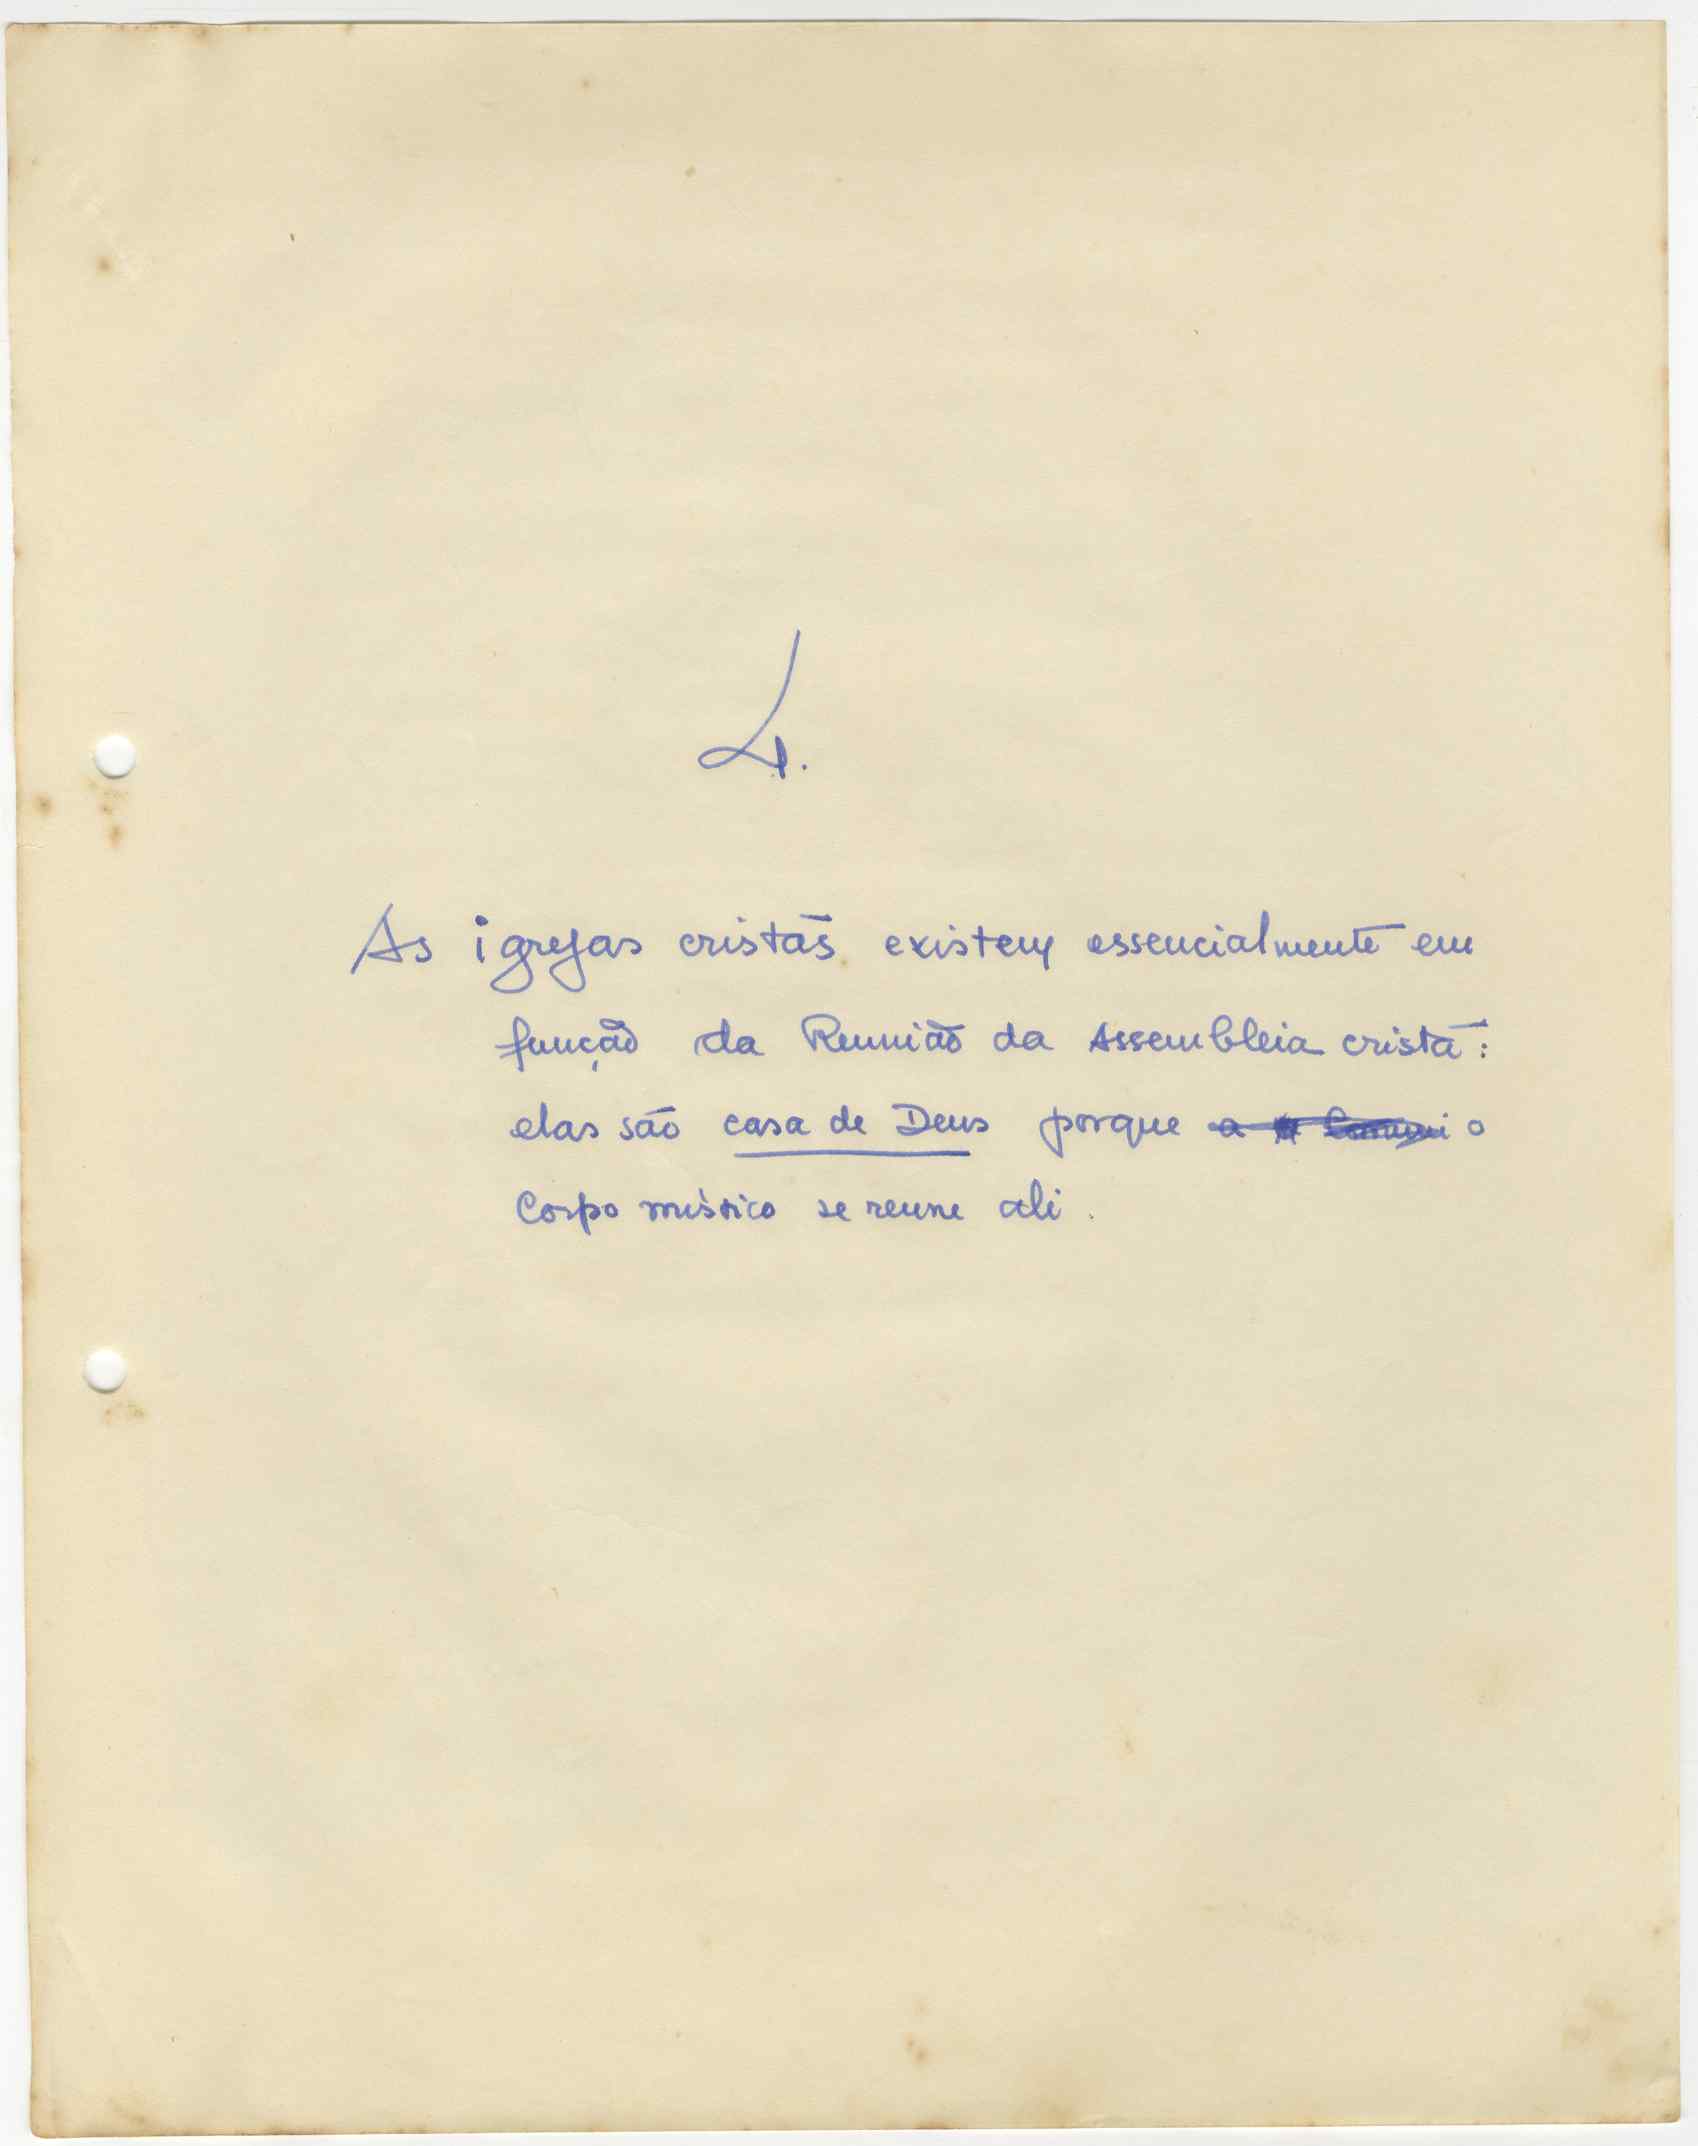 4.
As igrejas cristãs existem essencialmente em
função da Reunião da Assembleia cristã:
elas são casa de Deus porque a o
Corpo místico se reune ali.